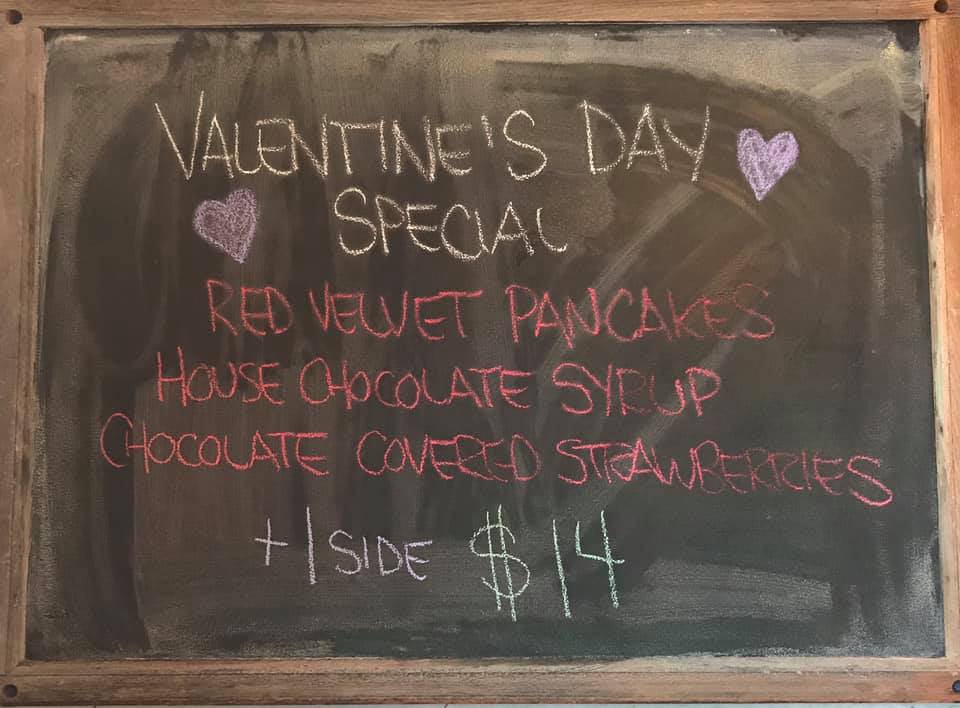 VALENTINE'S DAY
SPECIAL
RED VELVET PANCAKES
HOUSE CHOCOLATE SYRUP
CHOCOLATE COVERED STRAWBERRIES
+1 SIDE $14